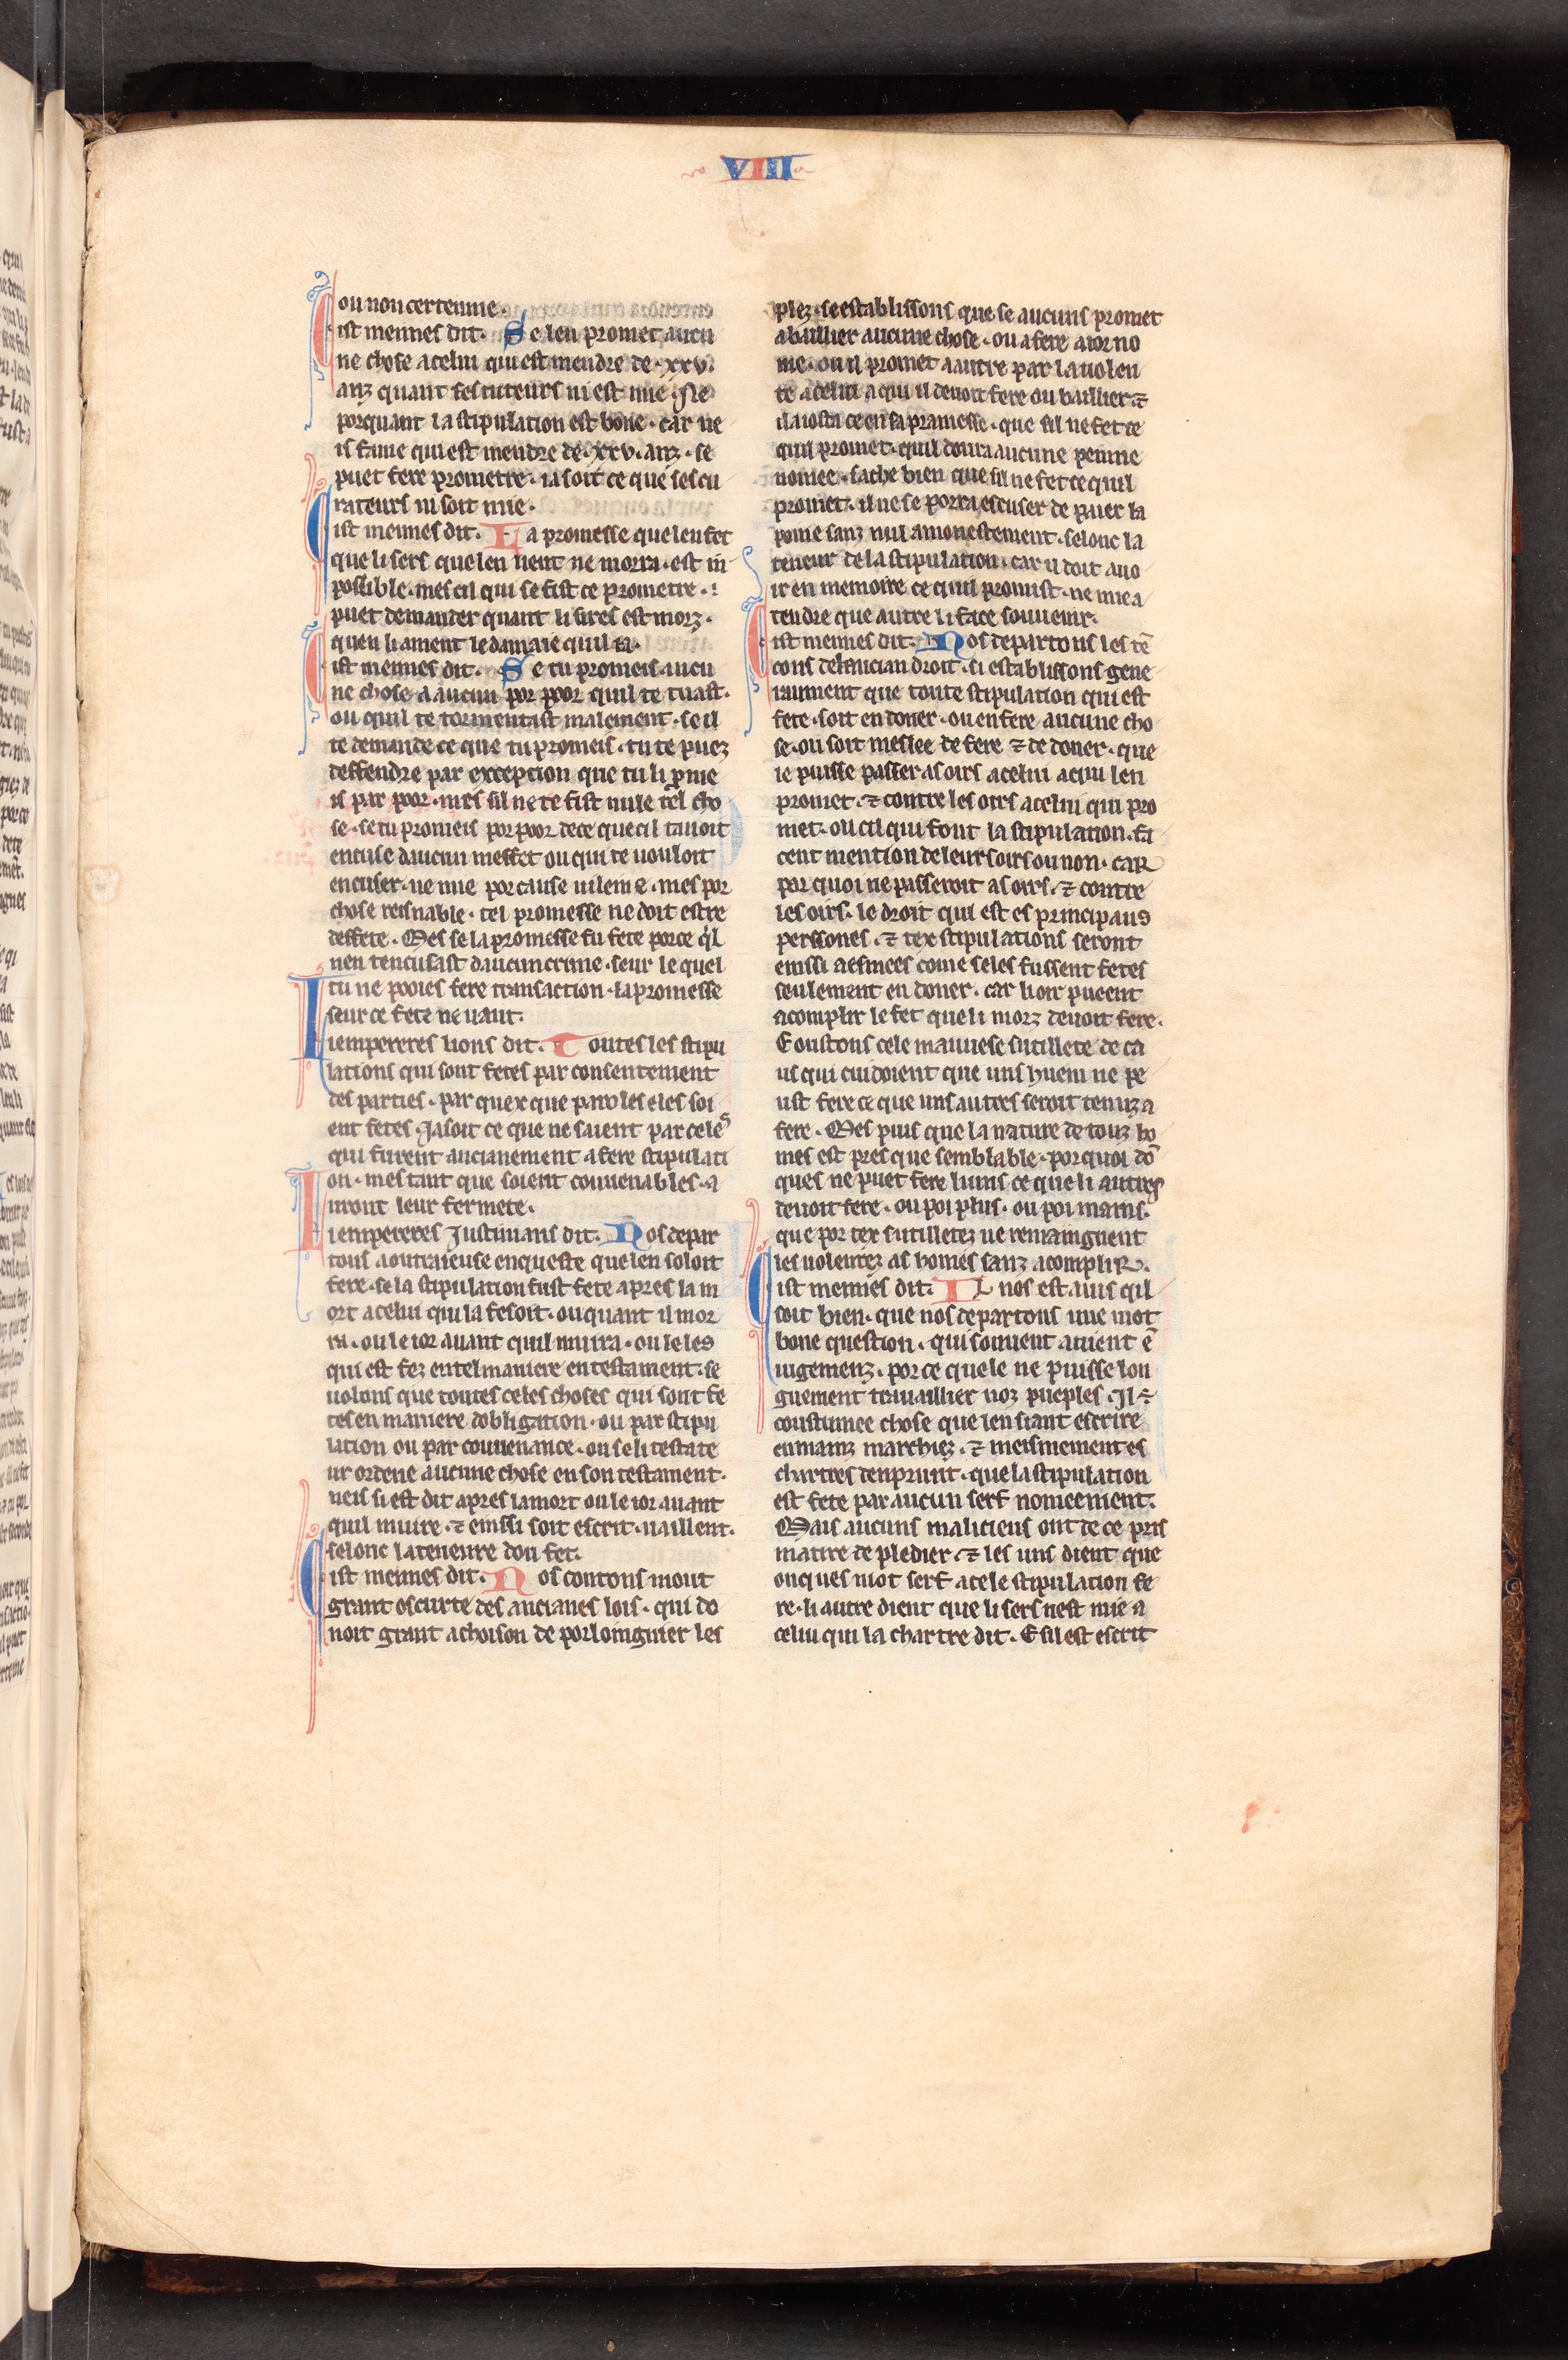 VIIII
ou non certenne.
Cist meimes dit. Se len promet aucu
ne chose a celui qui est mendre de .xxv.
anz quant ses tuteurs ni est mie. Ne
porquant la stipulation est bone. car ne
is fame qui est mendre de .xxv. anz. se
puet fere prometre. ia soit ce que ses cu
rateurs ni soit mie.
Cist meimes dit. La promesse que len fet
que li sers que len vent ne morra. est in
possible. mes cil qui se fist ce prometre.
puet demander quant li sires est morz.
quen li ament le damaie quil ia.
Cist meimes dit. Se tu promeis aucu
ne chose a aucun por poor quil te tuast.
ou quil te tormentast malement. se il
te demande ce que tu promeis. tu te puez
deffendre par exception que tu li pme
is par poor. mes sil ne te fist nule tel cho
se. se tu promeis por poor de ce que cil tavoit
encuse daucun meffet ou qui te vouloit
encuser. ne mie por cause vileine. mes por
chose resnable. tel promesse ne doit estre
deffete. Mes se la promesse fu fete por ce ql
nen tencusast daucun crime. seur le quel
tu ne pooies fere transaction. la promesse
seur ce fete ne vaut.
Li empereres lions dit. Toutes les stipu
lations qui sont fetes par consentement
des parties. par quex que paroles eles soi
ent fetes. Ja soit ce que ne saient par celes
qui furent ancianement a fere stipulati
on. mes tant que soient convenables. a
uront leur fermete.
Li empereres Justinians dit. Nos depar
tons a outraieuse enqueste que len soloit
fere. se la stipulation fust fete apres la m
ort a celui qui la fesoit. ou quant il mor
ra. ou le ior avant quil muira. ou le les
qui est fez en tel maniere en testament. se
volons que toutes celes choses qui sont fe
tes en maniere dobligation. ou par stipu
lation ou par couvenance. ou se li testate
ur ordene aucune chose en son testament.
neis si est dit apres la mort ou le ior avant
quil muire. ⁊ einssi soit escrit. vaillent.
selonc la teneure dou fet.
Cist meimes dit. Nos contons mout
grant oscurte des ancianes lois. qui do
noit grant achoison de porloingnier les
plez. se establissons que se aucuns promet
a baillier aucune chose. ou a fere a ior no
me. ou il promet a autre par la volen
te a celui a qui il devoit fere ou baillier ⁊
il aiosta ce en sa pramesse. que sil ne fet ce
quil promet. quil doura aucune peinne
nomee. sache bien que sil ne fet ce quil
promet. il ne se porra escuser de paier la
poine sanz nul amonestement. selonc la
teneur de la stipulation. car il doit avo
ir en memoire ce quil promist. ne mie a
tendre que autre li face souvenir.
Cist meimes dit. Nos departons les tē
cons de lancian droit. si establissons gene
raument que toute stipulation qui est
fete. soit en doner. ou en fere aucune cho
se. ou soit meslee de fere ⁊ de doner. que
ie puisse passer as oirs a celui a qui len
promet. ⁊ contre les oirs a celui qui pro
met. ou cil qui font la stipulation. fa
cent mention de leurs oirs ou non. car
por quoi ne passeroit as oirs. ⁊ contre
les oirs. le droit qui est es principaus
perssones. ⁊ tex stipulations seront
einssi aesmees come seles fussent fetes
seulement en doner. car li oir pueent
acomplir le fet que li morz devoit fere.
E oustons cele mauvese sutillete de ca
us qui cuidoient que uns huem ne pe
ust fere ce que uns autres seroit tenuz a
fere. Mes puis que la nature de touz ho
mes est pres que semblable. por quoi dō
ques ne puet fere luins ce que li autres
devoit fere. ou poi plus. ou poi mains.
que por tex sutilletez ne remaingnent
les volentez as homes sanz acomplir.
Cist meimes dit. IL nos est avis qil
soit bien. que nos departons une mot
bone question. qui souvent avient ē
iugemenz. por ce quele ne puisse lon
guement travaillier noz pueples. Il ÷
coustumee chose que len siaut escrire
en mainz marchiez. ⁊ meismement es
chartres denprunt. que la stipulation
est fete par aucun serf nomeement.
Mais aucuns malicieus ont de ce pris
matire de pledier. ⁊ les uns dient que
onques mot serf a cele stipulation fe
re. li autre dient que li sers nest mie a
celui qui la chartre dit. E sil est escrit